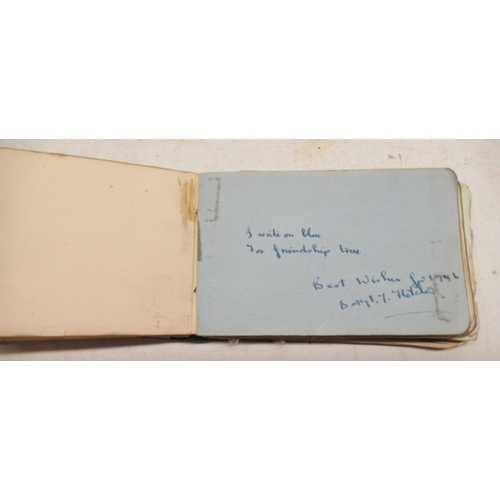 I write on blue
For friendship true.
Best Wishes for 1942
Beryl. J.